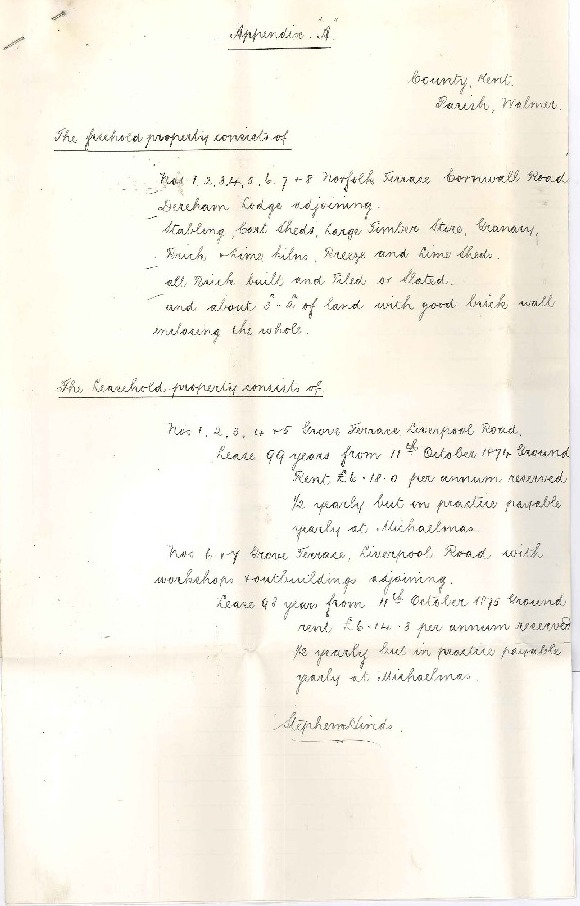 Appendix "A"
County, Kent.
Parish, Walmer.
The freehold property consists of
Nos 1, 2, 3, 4, 5, 6, 7 + 8 Norfolk Terrace Cornwall Road
Dereham Lodge adjoining.
Stabling, Cart Sheds, Large Timber Store, Granary,
Brick + Lime kilns, Breeze and Lime Sheds.
all Brick built and Tiled or Slated.
and about of land with good brick wall
enclosing the whole.
The Leasehold property consists of
Nos 1, 2, 3, 4 + 5 Grove Terrace Liverpool Road.
Lease 99 years from 11th October 1874 Ground
Rent £6-18-0 per annum reserved
1/2 yearly but in practice payable
yearly at Michaelmas.
Nos 6 + 7 Grove Terrace, Liverpool Road with
workshops + outbuildings adjoining.
Lease 98 years from 11th October 1875 Ground
rent £6-14-3 per annum reserved
1/2 yearly but in practice payable
yearly at Michaelmas.
Stephen Hinds.